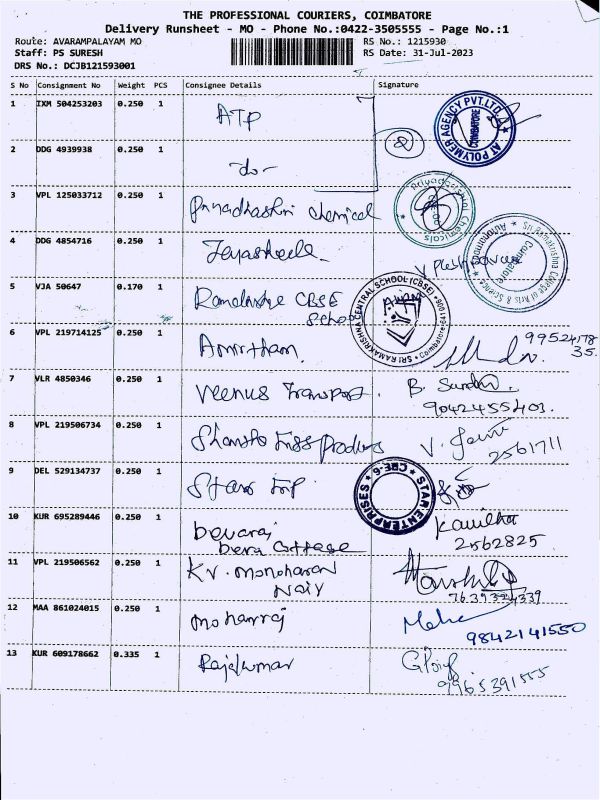 THE PROFESSIONAL COURIERS, COIMBATORE
Delivery Runsheet - MO - Phone No.:0422-3505555 - Page No.:1
Route: AVARAMPALAYAM MO RS No.: 1215930
Staff: PS SURESH RS Date: 31-Jul-2023
DRS No.: DCJB121593001
S No Consignment No Weight PCS Consignee Details Signature
1 IXM 504253203 0.250 1 ATP
AT POLYMER AGENCY PVT.LTD. COIMBATORE
2 DDG 4939938 0.250 1 do- 2
3 VPL 125033712 0.250 1 Priyadharshri chemical
Priyadharshni Chemicals
4 DDG 4854716 0.250 1 Jeyasheela
Sri Ramakrishna College of Arts & Science (Autonomous) Coimbatore
5 VJA 50647 0.170 1 Ramakrishna CBSE
School
SRI RAMAKRISHNA CENTRAL SCHOOL (CBSE) Coimbatore
6 VPL 219714125 0.250 1 Amirtham 99524178
35.
7 VLR 4850346 0.250 1 Veenus Transport. B.
9042455403.
8 VPL 219506734 0.250 1 V.
2561711
9 DEL 529134737 0.250 1 Star
STAR ENTERPRISES CBE-6
10 KUR 695289446 0.250 1 Devaraj Kavitha
Deva Cottage 2562825
11 VPL 219506562 0.250 1 K.V. Manoharan
Naiy 7639394339
12 MAA 861024015 0.250 1 Mohanraj
9842141550
13 KUR 609178662 0.335 1 Rajakumar
9965391555